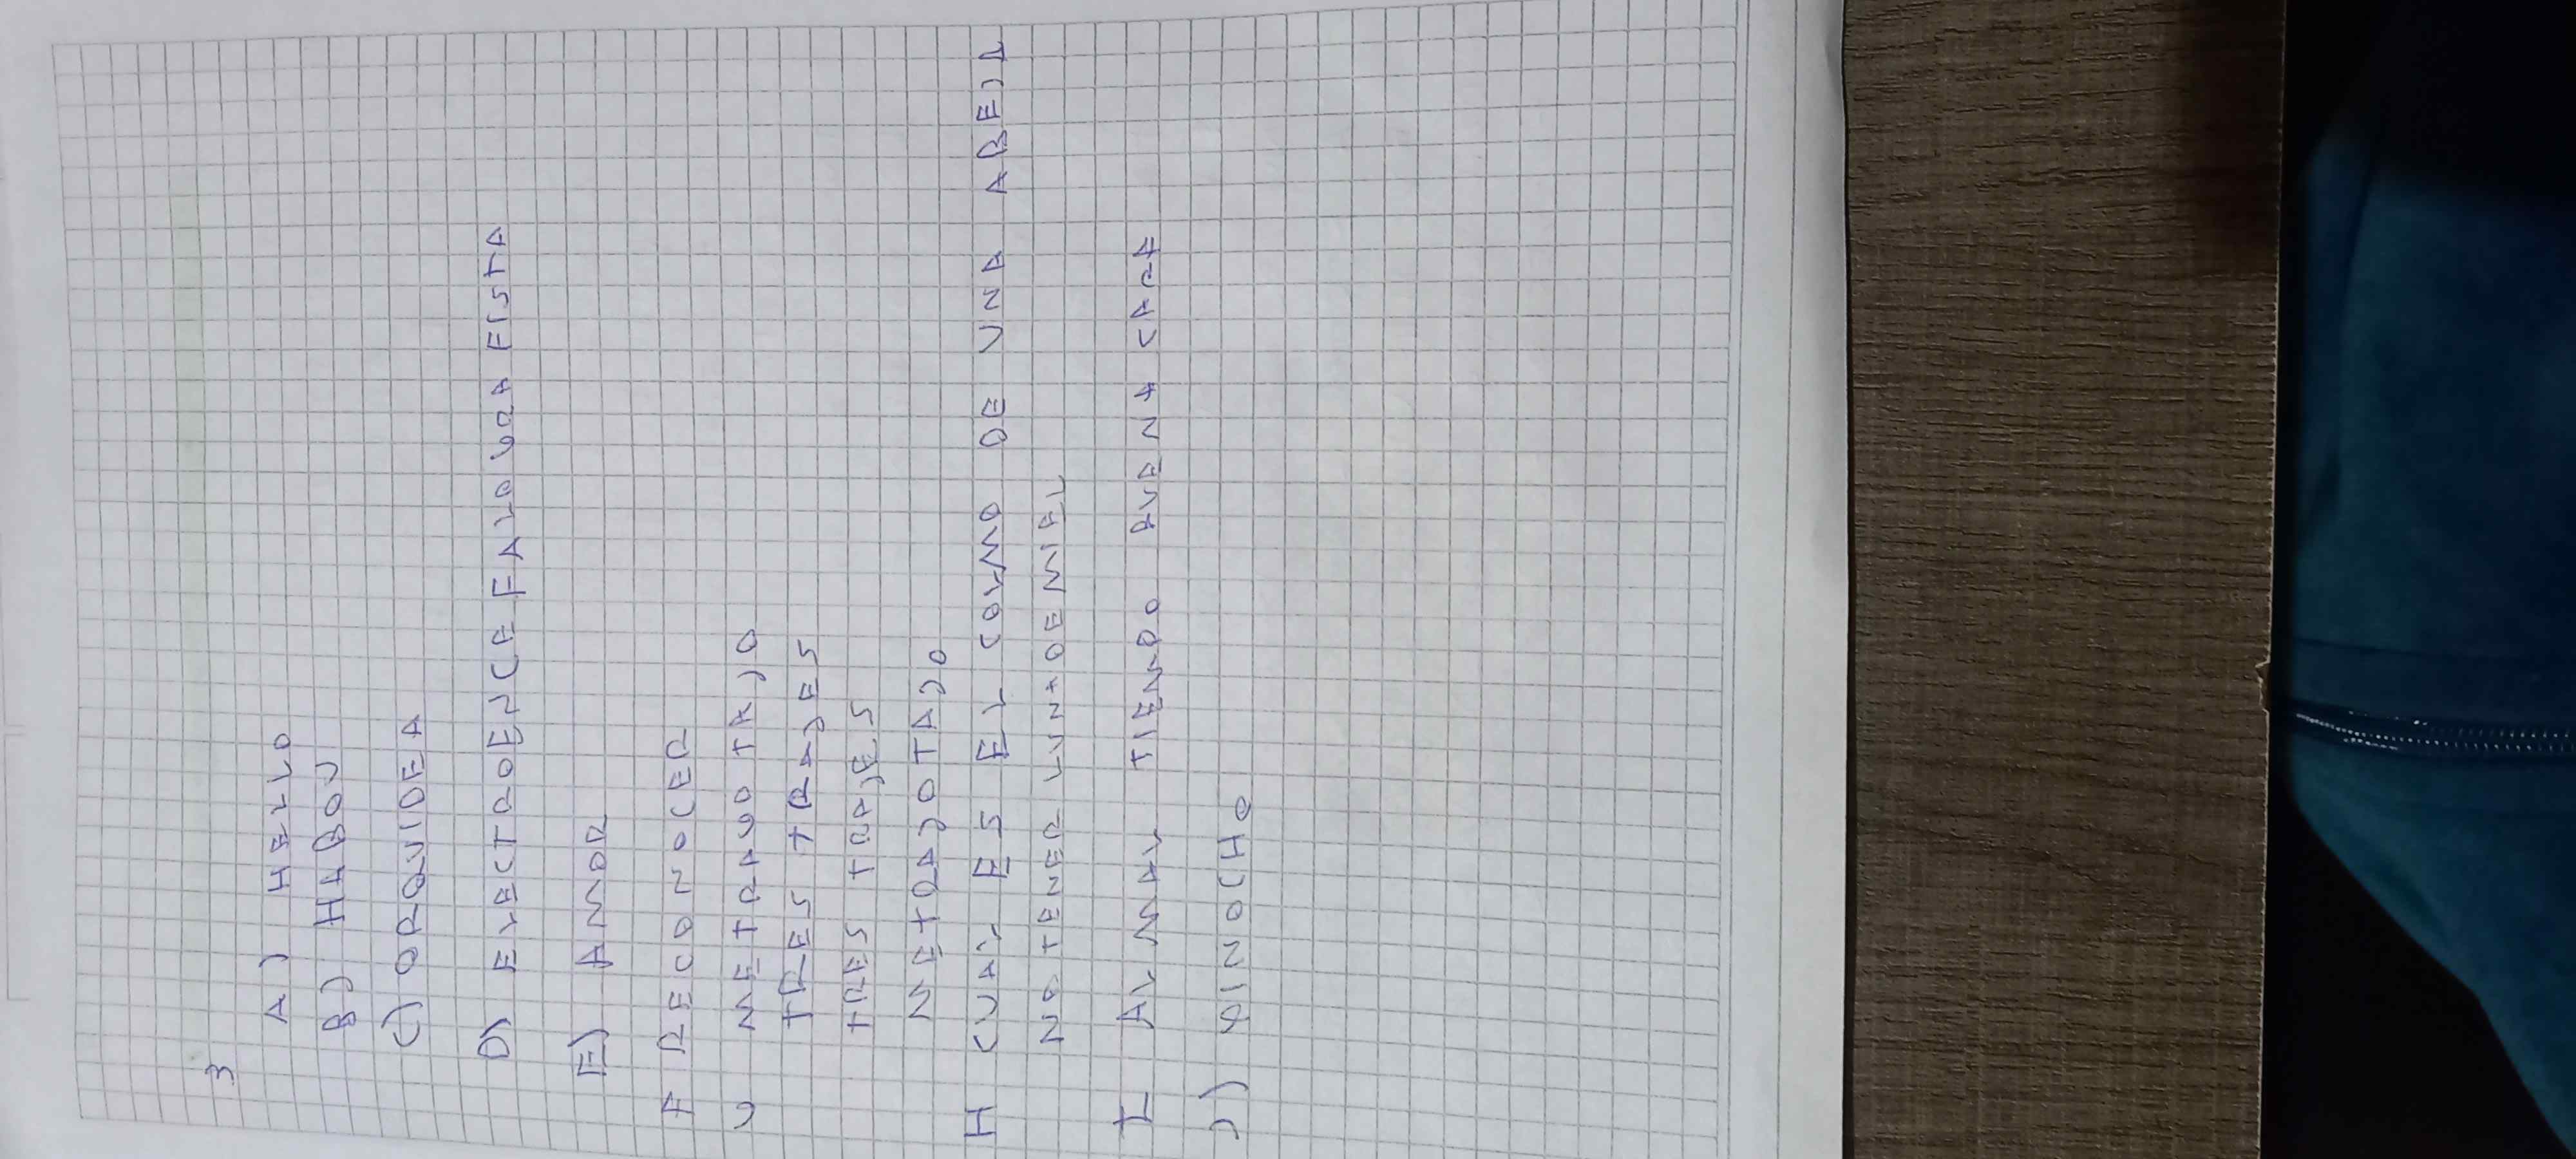 3
A) HELLO
B) HABOU
C) ORQUIDEA
D) ELECTROENCEFALOGRAFISTA
E) AMOR
F RECONOCER
G METRAGOTAJO
TRES TRAJES
TRES TRAJES
METRAJOTAJO
H CUAL ES EL COLMO DE UNA ABEJA
NO TENER LUNA DE MIEL
I AL MAL TIEMPO BUENA CARA
J) PINOCHO